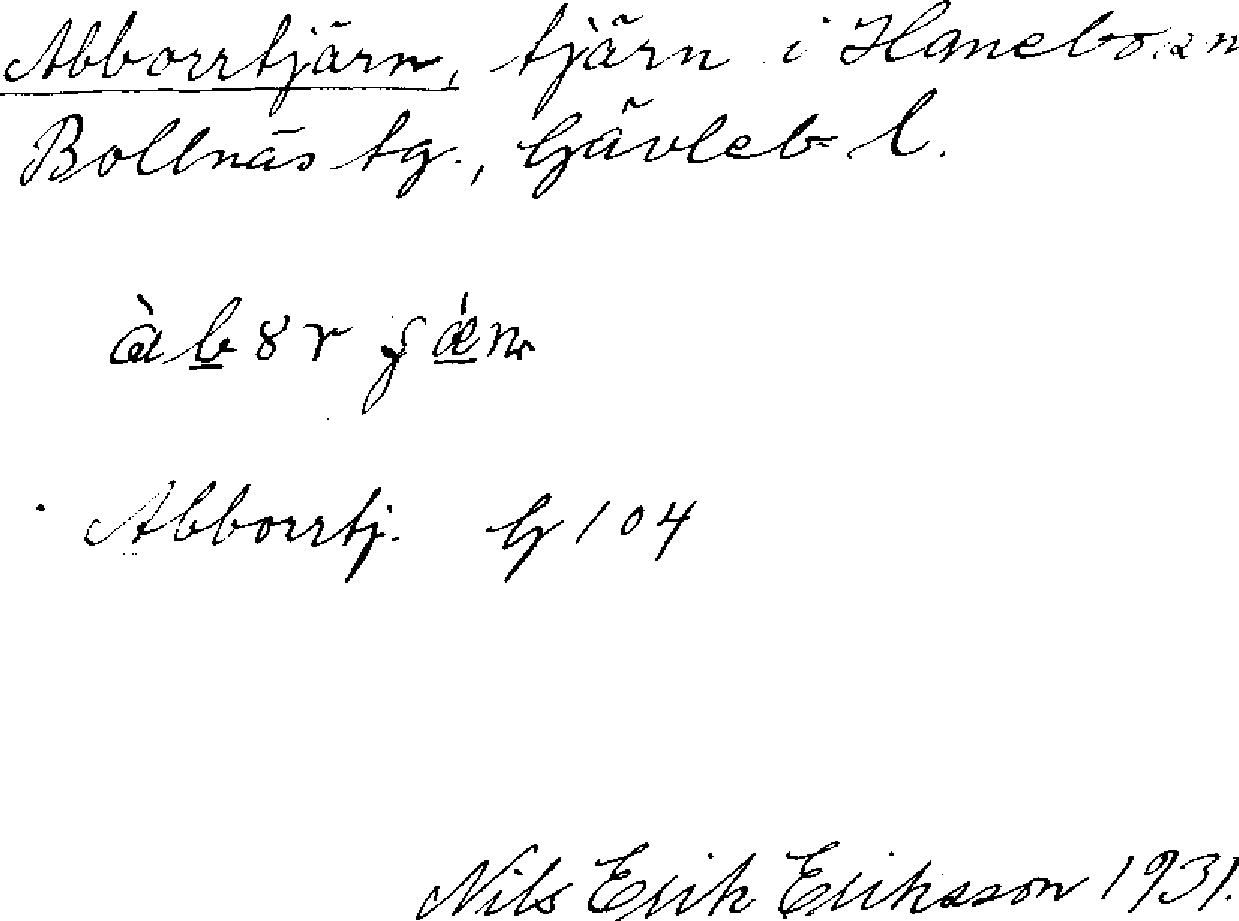 Abborrtjärn, tjärn i Hanebo sn
Bollnäs tg., Gävleb l.
àb8r ʃǽn
Abborrtj. G 104
Nils Erik Eriksson 1931.